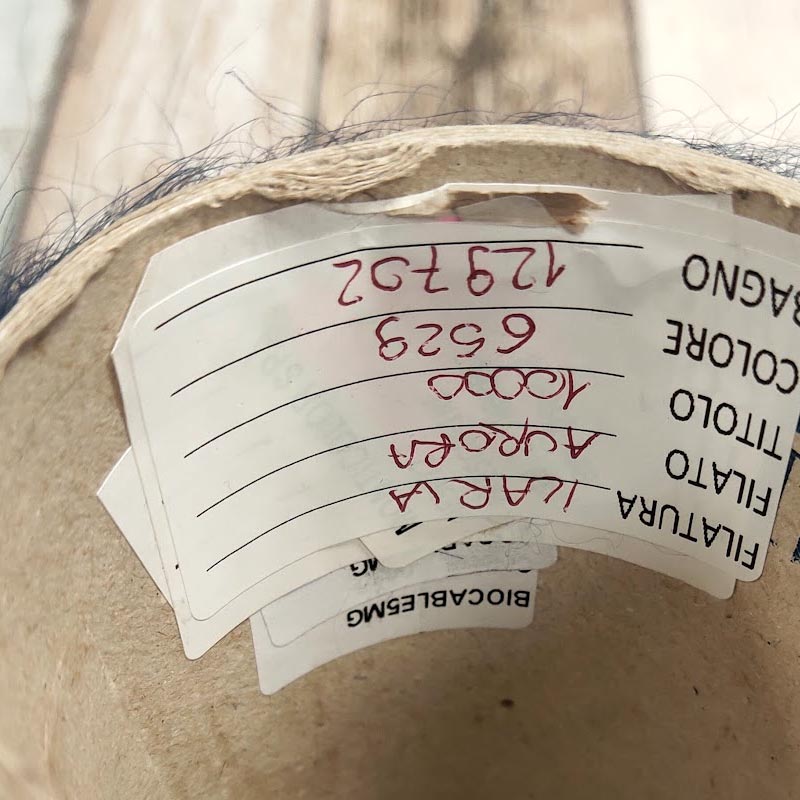 BIOCABLE5MG
FILATURA ILARIA
FILATO AURORA
TITOLO 10000
COLORE 6529
BAGNO 129702